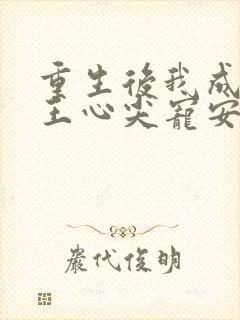 重生後我成
王心尖寵安
嚴代俊明